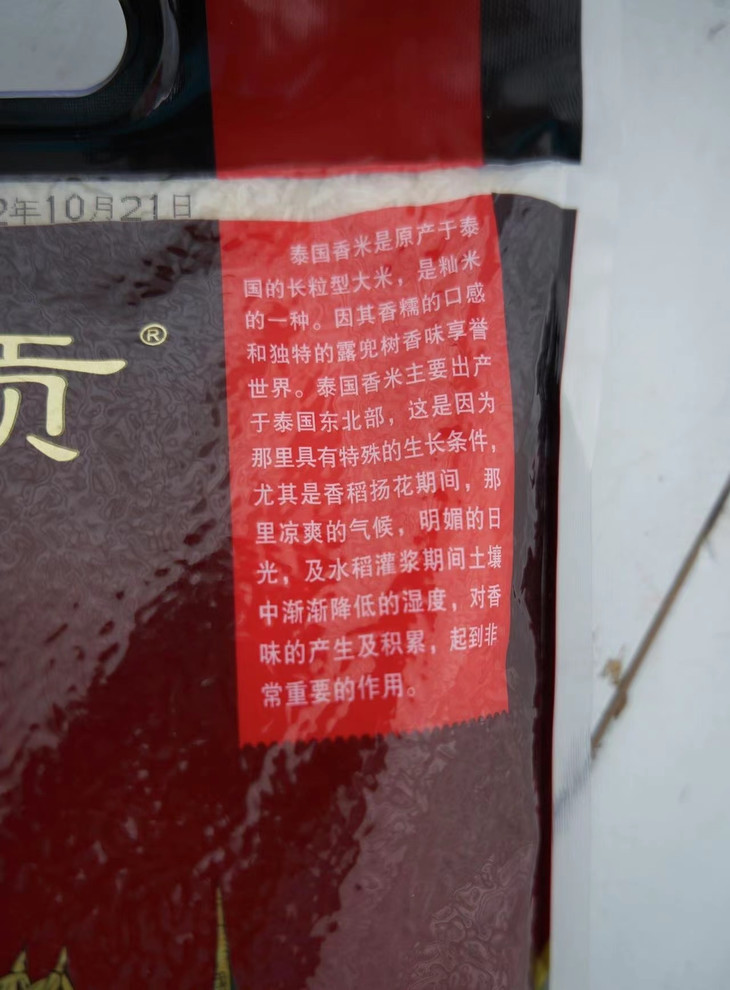 2年10月21日
贡®
泰国香米是原产于泰
国的长粒型大米，是籼米
的一种。因其香糯的口感
和独特的露兜树香味享誉
世界。泰国香米主要出产
于泰国东北部，这是因为
那里具有特殊的生长条件，
尤其是香稻扬花期间，那
里凉爽的气候，明媚的日
光，及水稻灌浆期间土壤
中渐渐降低的湿度，对香
味的产生及积累，起到非
常重要的作用。